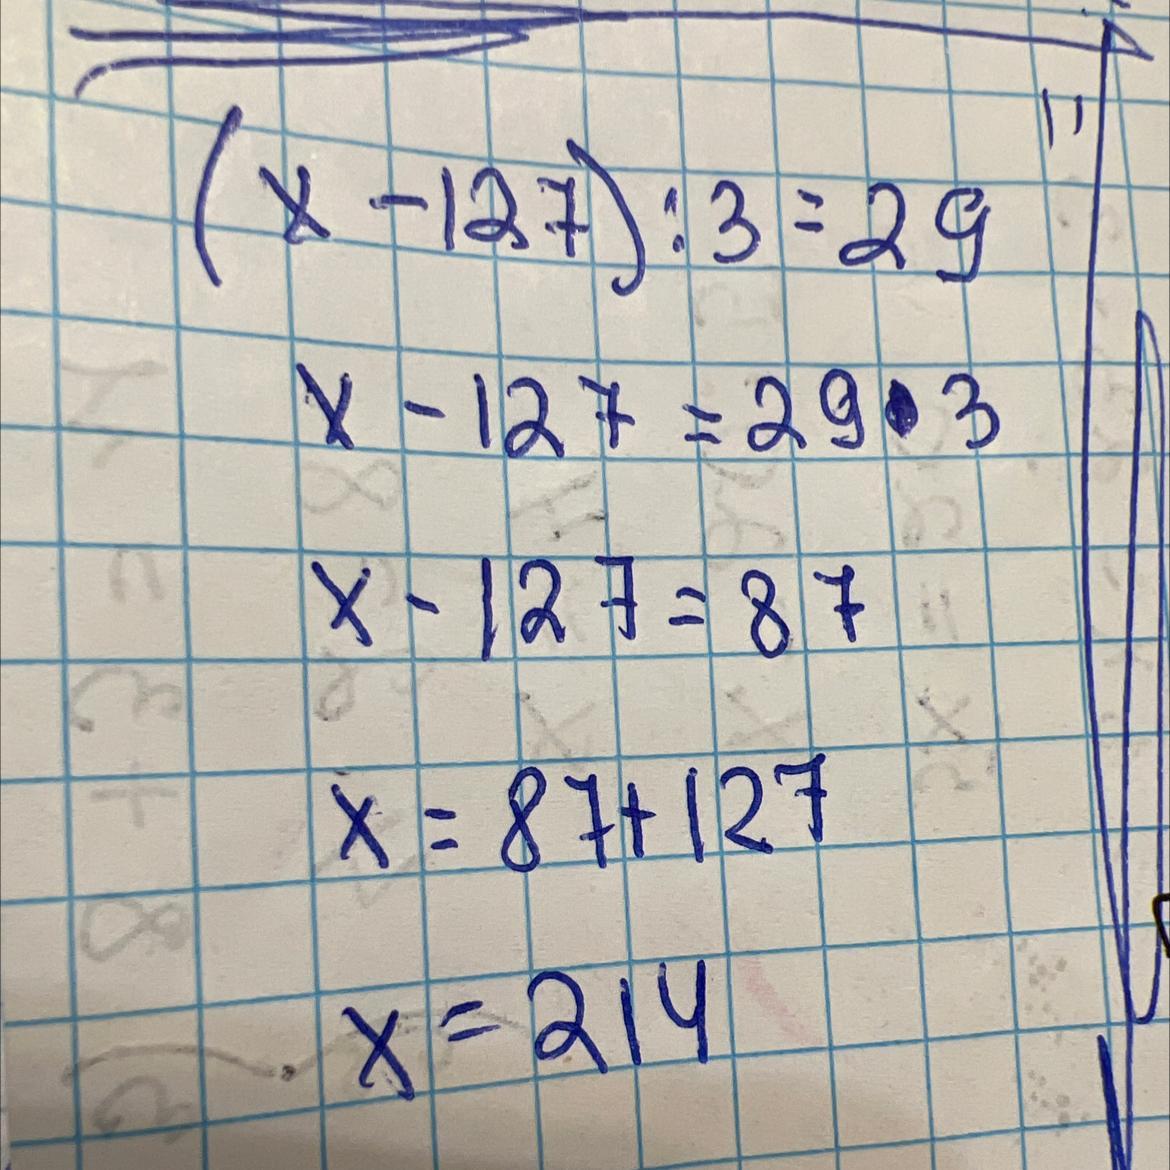 (x - 127) : 3 = 29
x - 127 = 29 • 3
x - 127 = 87
x = 87 + 127
x = 214